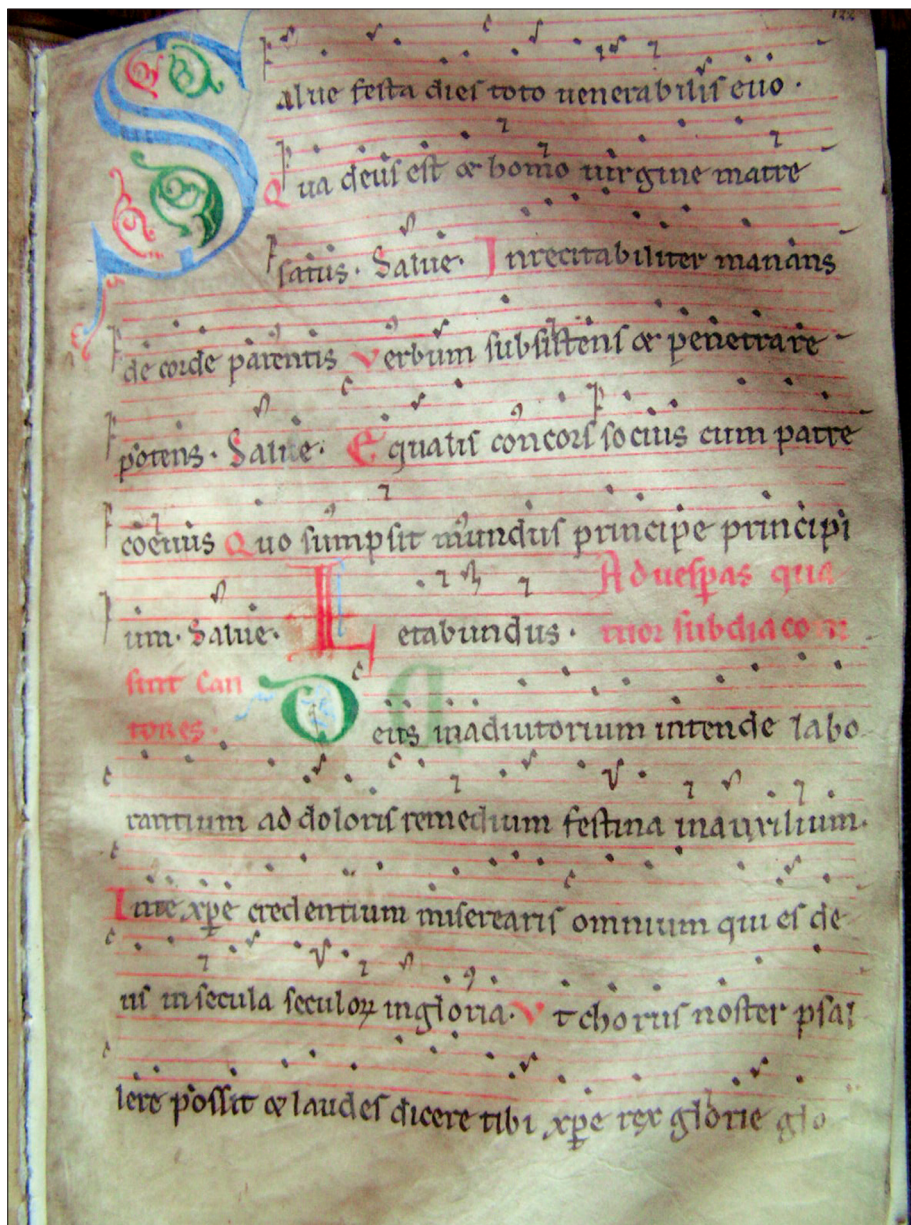 122
Salue festa dies toto uenerabilis euo .
Qua deus est & homo uirgine matre
satus . Salue . Inrecitabiliter manans
de corde parentis Verbum subsistens & penetrare
potens . Salue . Equalis concors socius cum patre
coeuus Quo sumpsit mundus principe principi
um . Salue . Letabundus . Ad uesp̄as qua
tuor subdiaconi
sint can
tores .
Deus in adiutorium intende labo
rantium ad doloris remedium festina in auxilium .
In te xp̄e credentium miserearis omnium qui es de
us in secula seculoꝝ in gloria . Vt chorus noster psal
lere possit & laudes dicere tibi xp̄e rex glorie glo